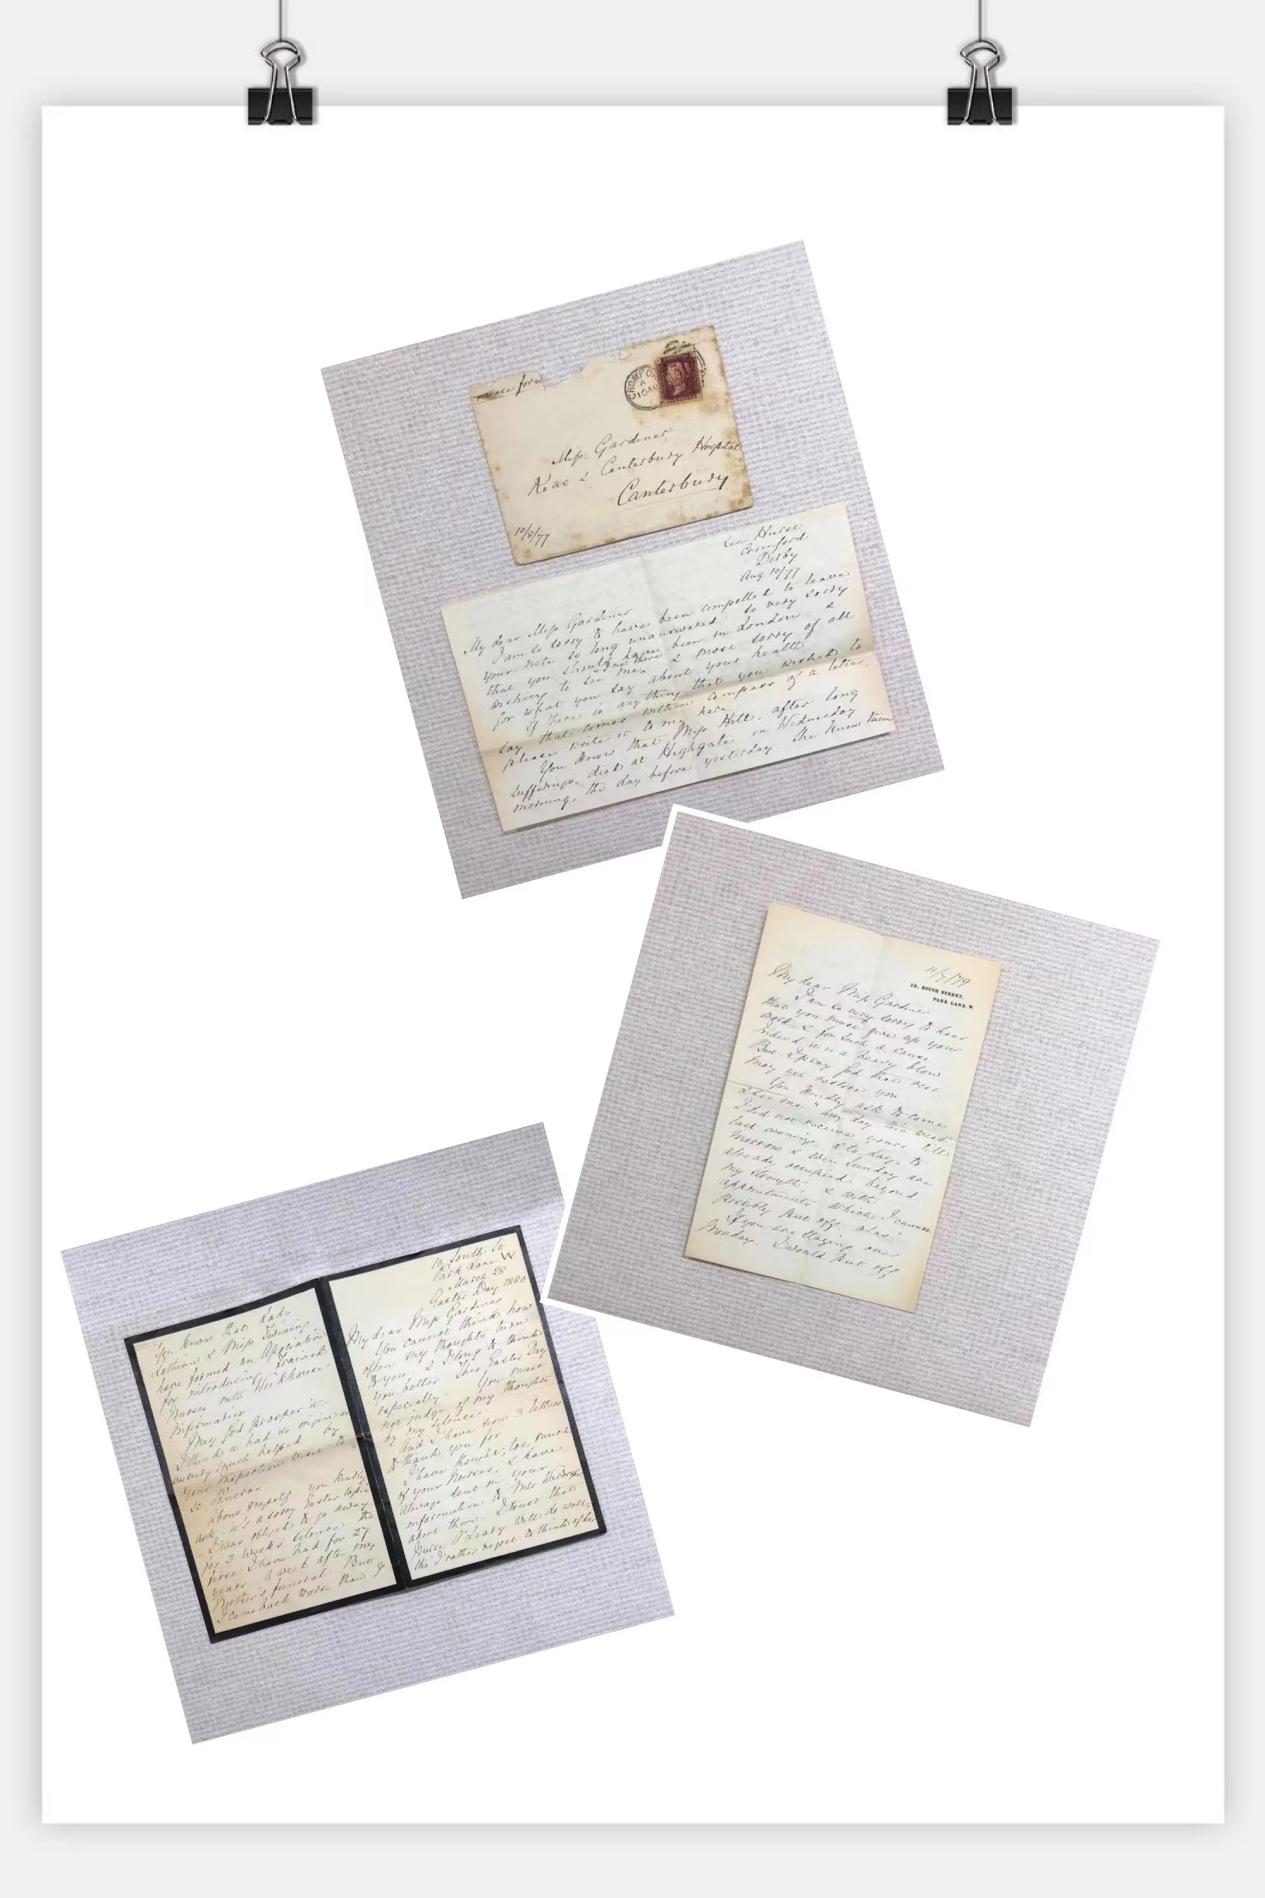 Miss Gardiner
Kent & Canterbury Hospital
Canterbury
10/8/77
CROMFO
A
10 AU
Lea Hurst
Cromford
Derby
Aug 10/77
My dear Miss Gardiner
I am so sorry to have been compelled to leave
your note so long unanswered: so very sorry
that you should have been in London &
wishing to see me & most sorry of all
for what you say about your health.
If there is anything that you wished to
say that comes within compass of a letter,
please write it to me here.
You know that Miss Hill, after long
sufferings, died at Highgate on Wednesday
morning, the day before yesterday. She
11/7/79
10, SOUTH STREET,
PARK LANE. W.
My dear Miss Gardiner
I am so very sorry to hear
that you must give up your
work & for such a cause
indeed it is a heavy blow
But I pray God that rest
may yet restore you
You kindly ask to come
& see me "any day this week"
I did not receive yours till
last evening. & to day, to
morrow & even Sunday are
already occupied beyond
my strength & with
appointments which I cannot
possibly put off alas!
If you are staying over
Monday I would put off
10 South St
Park Lane W
March 28
Easter Day 1880
My dear Miss Gardiner
You cannot think how
often my thoughts turn
to you: & I long to think
you better this Easter Day
especially. You must
not judge of my thoughts
by my silence.
And I have now 3 letters
to thank you for
I have thought, too, much
of your Nurses, & have
always sent on your
information to Mrs
about them. I trust that
Nurse O'Leary will do well,
tho' I rather regret to think of her
You know that Lady
Lothian & Miss Twining
have formed an Association
for introducing Trained
Nurses into Workhouse
Infirmaries.
May God prosper it.
I think it had its origin or
was very much helped by
your Inspection visit to
St
About myself you kindly
ask: it's a sorry Easter
I was obliged to go away
for 3 weeks' silence the
first I have had for 27
years a week after my
Mother's funeral. But
I come back worse than I